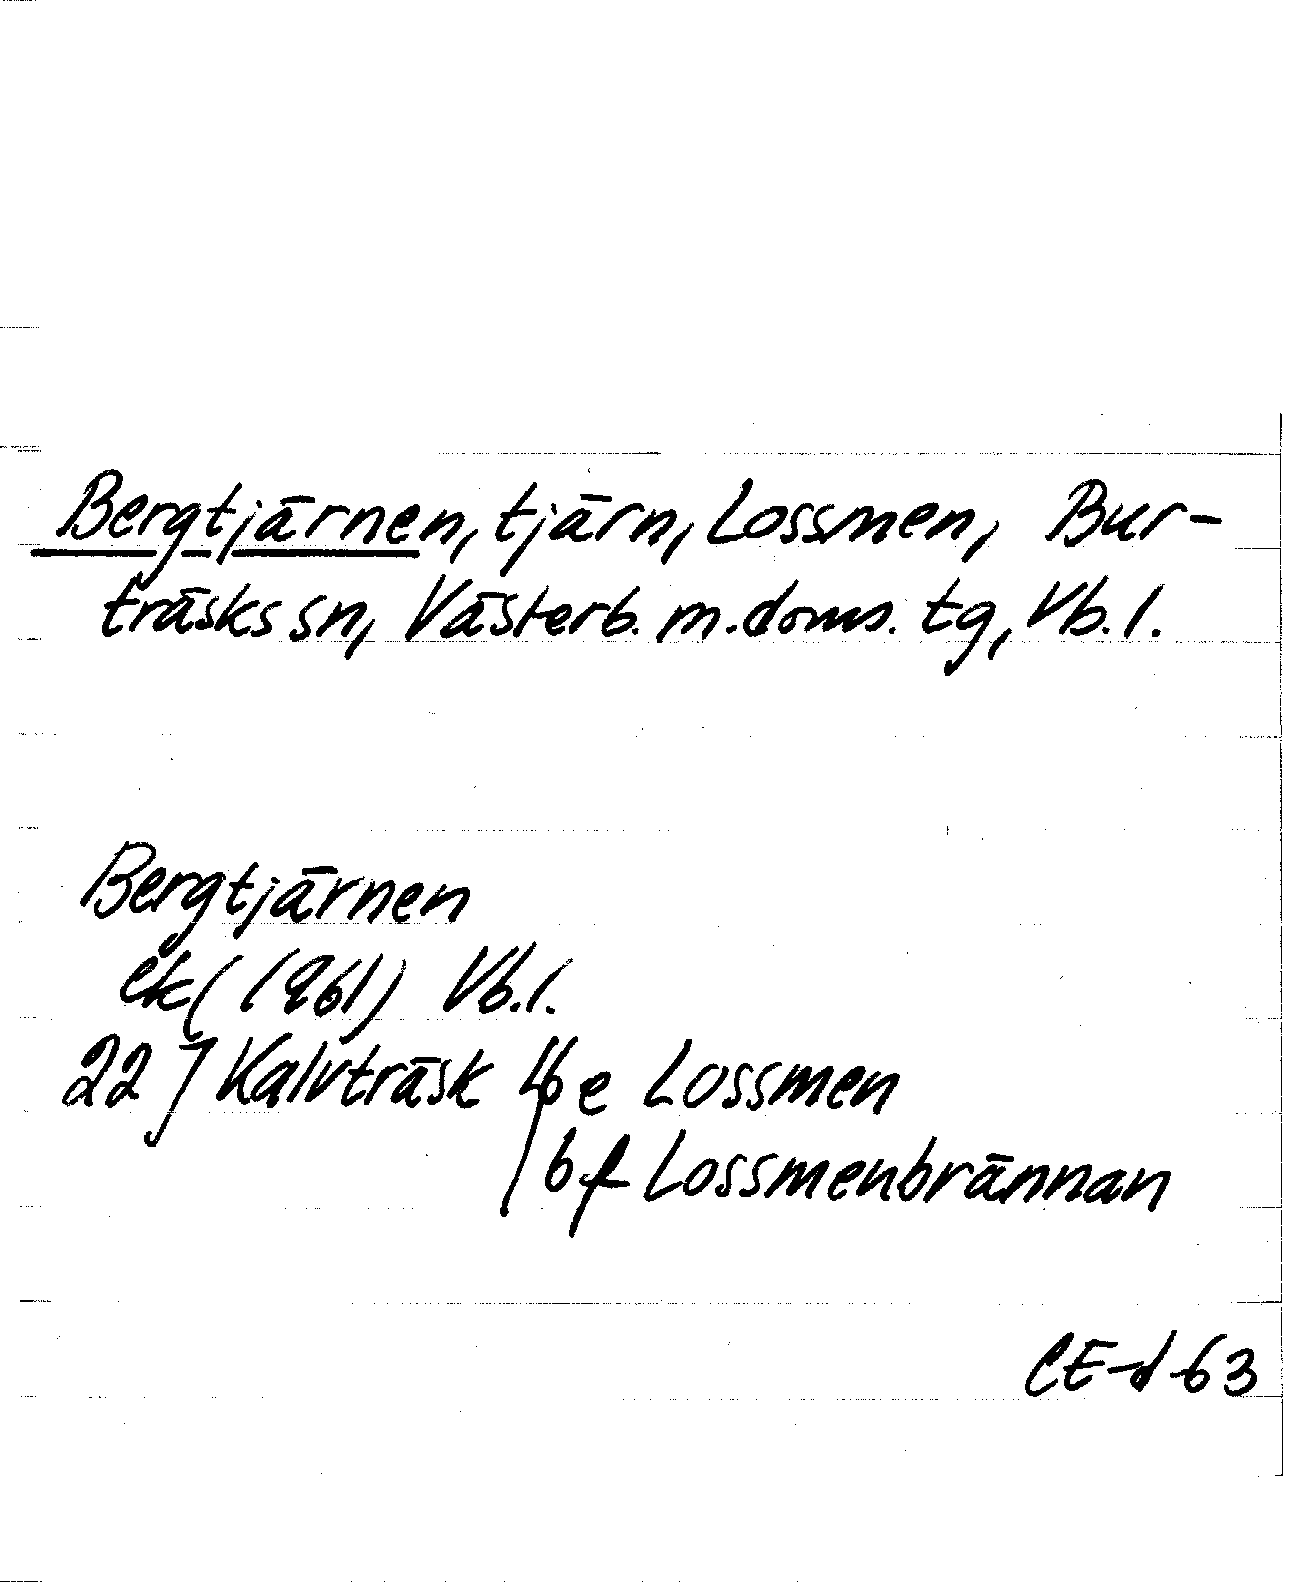 Bergtjärnen, tjärn, Lossmen, Bur-
träsks sn, Västerb. m. doms. tg, Vb. l.
Bergtjärnen
ek (1961) Vb. l.
22 J Kalvträsk 4b e Lossmen
/ b f Lossmenbrännan
CE-d-63